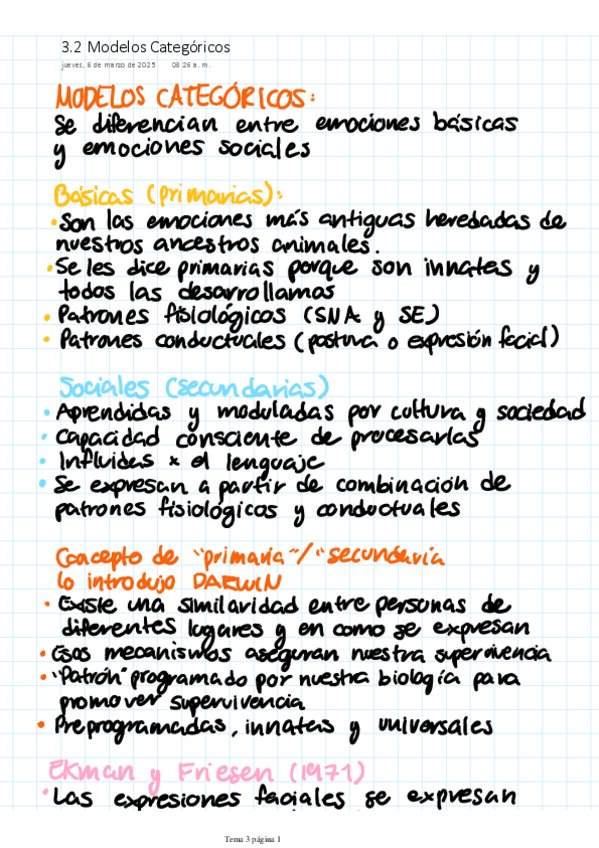 3.2 Modelos Categóricos
jueves, 6 de marzo de 2025 08:26 a. m.
MODELOS CATEGÓRICOS:
Se diferencian entre emociones básicas
y emociones sociales
Básicas (primarias):
• Son las emociones más antiguas heredadas de
nuestros ancestros animales.
• Se les dice primarias porque son innatas y
todos las desarrollamos
• Patrones fisiológicos (SNA y SE)
• Patrones conductuales (postura o expresión facial)
Sociales (secundarias)
• Aprendidas y moduladas por cultura y sociedad
• Capacidad consciente de procesarlas
• Influidas x el lenguaje
• Se expresan a partir de combinación de
patrones fisiológicos y conductuales
Concepto de "primaria"/"secundaria
lo introdujo DARWIN
• Existe una similaridad entre personas de
diferentes lugares y en como se expresan
• Esos mecanismos aseguran nuestra supervivencia
• "Patrón" programado por nuestra biología para
promover supervivencia
• Preprogramadas, innatas y universales
Ekman y Friesen (1971)
• Las expresiones faciales se expresan
Tema 3 página 1